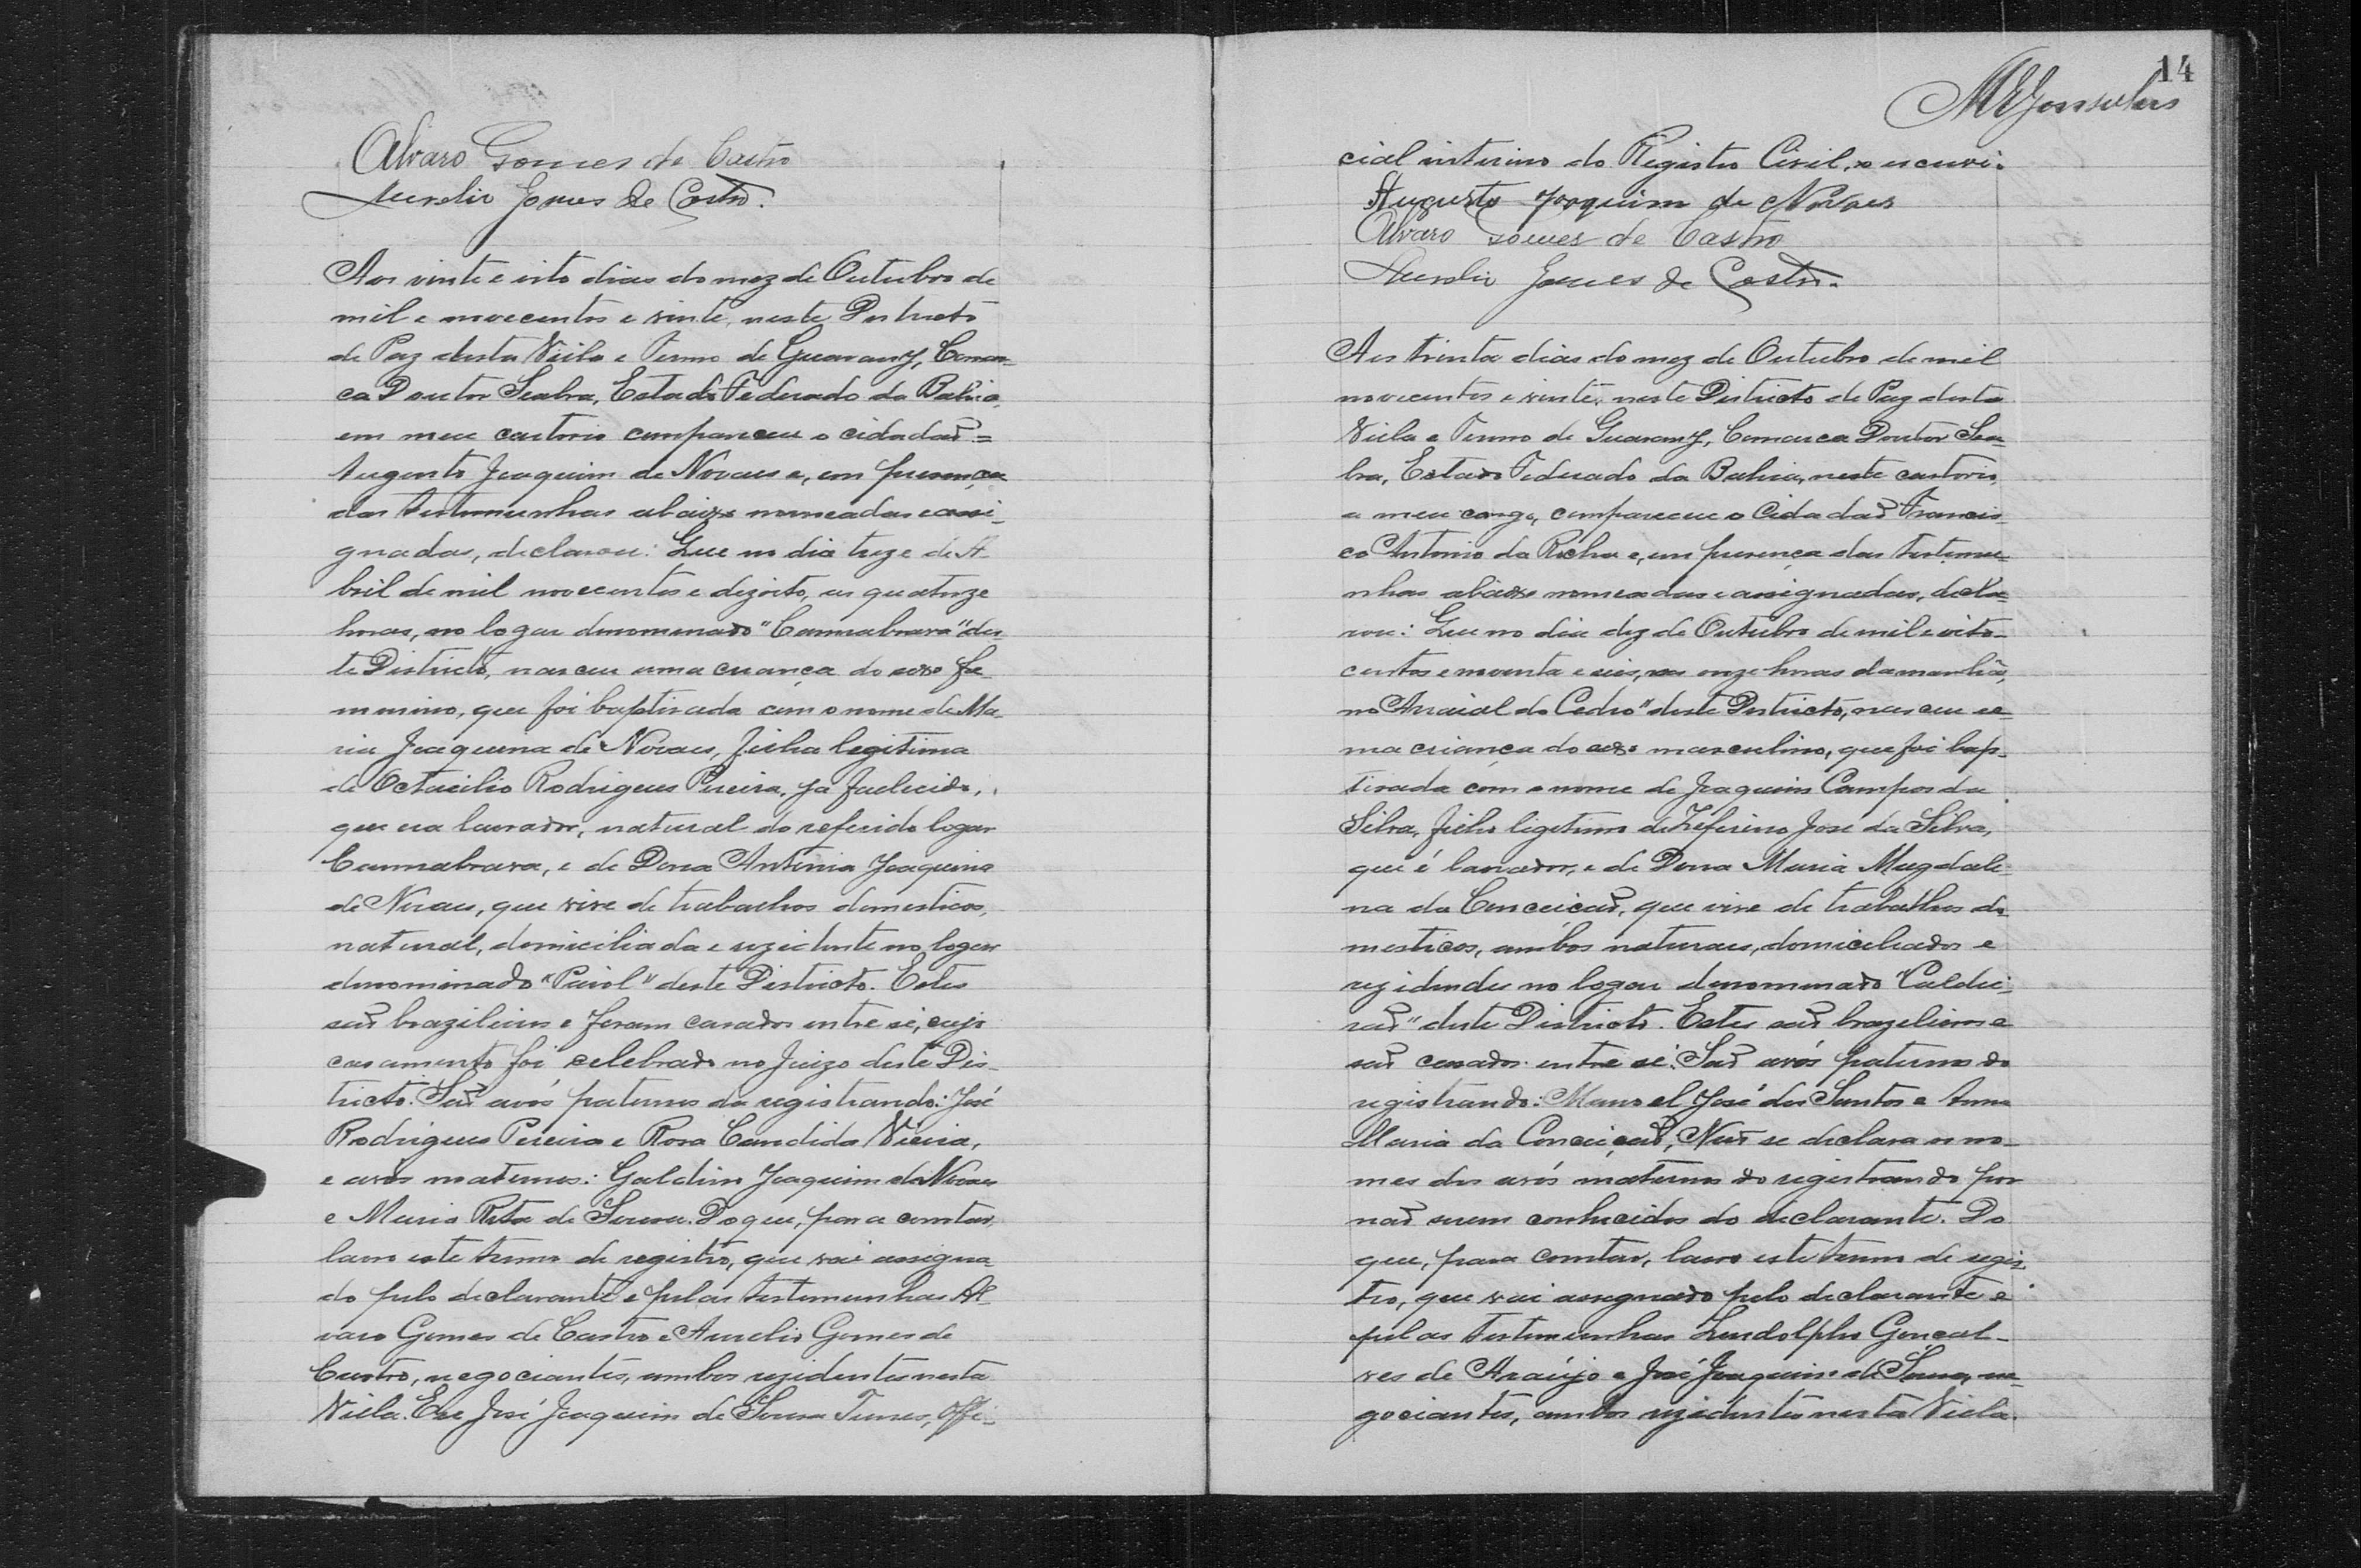 Alvaro Gomes de Castro
Aurelio Gomes de Castro.
Aos vinte e oito dias do mez de Outubro de
mil e novecentos e vinte, neste Districto
de Paz desta Villa e Termo de Guarany, Comar-
ca Doutor Seabra, Estado Federado da Bahia,
em meu cartorio compareceu o cidadaõ =
Augusto Joaquim de Novaes e, em presença
das testemunhas abaixo nomeadas e assi-
gnadas, declarou: Que no dia treze de A-
bril de mil novecentos e dezoito, as quatorze
horas, no logar denominado "Cannabrava" des-
te Districto, nasceu uma criança do sexo fe-
minino, que foi baptisada com o nome de Ma-
ria Joaquina de Novaes, filha legitima
de Octacilio Rodrigues Pereira, ja fallecido,
que era lavrador, natural do referido logar
Cannabrava, e de Dona Antonia Joaquina
de Novaes, que vive de trabalhos domesticos,
natural, domiciliada e rezidente no logar
denominado "Paiol" deste Districto. Estes
saõ brazileiros e foram casados entre si, cujo
casamento foi celebrado no Juizo deste Dis-
tricto. Saõ avós paternos da registranda: José
Rodrigues Pereira e Rosa Candida Vieira,
e avós maternos: Galdino Joaquim de Novaes
e Maria Rita de Sousa. Do que, para constar,
lavro este termo de registro, que vai assigna-
do pelo declarante e pelas testemunhas Al-
varo Gomes de Castro e Aurelio Gomes de
Castro, negociantes, ambos rezidentes nesta
Villa. Eu José Joaquim de Sousa Tunes, Offi-
14
cial interino do Registro Civil, o escrevi.
Augusto Joaquim de Novaes
Alvaro Gomes de Castro
Aurelio Gomes de Castro.
Aos trinta dias do mez de Outubro de mil
novecentos e vinte, neste Districto de Paz desta
Villa e Termo de Guarany, Comarca Doutor Sea-
bra, Estado Federado da Bahia, neste cartorio,
a meu cargo, compareceu o Cidadaõ Francis-
co Antonio da Rocha e, em presença das testemu-
nhas abaixo nomeadas e assignadas, decla-
rou: Que no dia dez de Outubro de mil e oito-
centos e noventa e seis, as onze horas da manhã,
no "Arraial do Cedro" deste Districto, nasceu u-
ma criança do sexo masculino, que foi bap-
tisada com o nome de Joaquim Campos da
Silva, filho legitimo de Zeferino José da Silva,
que é lavrador, e de Dona Maria Magdale-
na da Conceicaõ, que vive de trabalhos do-
mesticos, ambos naturaes, domiciliados e
rezidindo no logar denominado "Caldei-
raõ" deste Districto. Estes saõ brazileiros e
saõ casados entre si. Saõ avós paternos do
registrando: Manoel José dos Santos e Anna
Maria da Conceiçaõ, Naõ se declara os no-
mes dos avós maternos do registrando por
naõ serem conhecidos do declarante. Do
que, para constar, lavro este termo de regis-
tro, que vai assignado pelo declarante e
pelas testemunhas Lindolpho Goncal-
ves de Araújo e José Joaquim de Sousa, ne-
gociantes, ambos rezidentes nesta Villa.